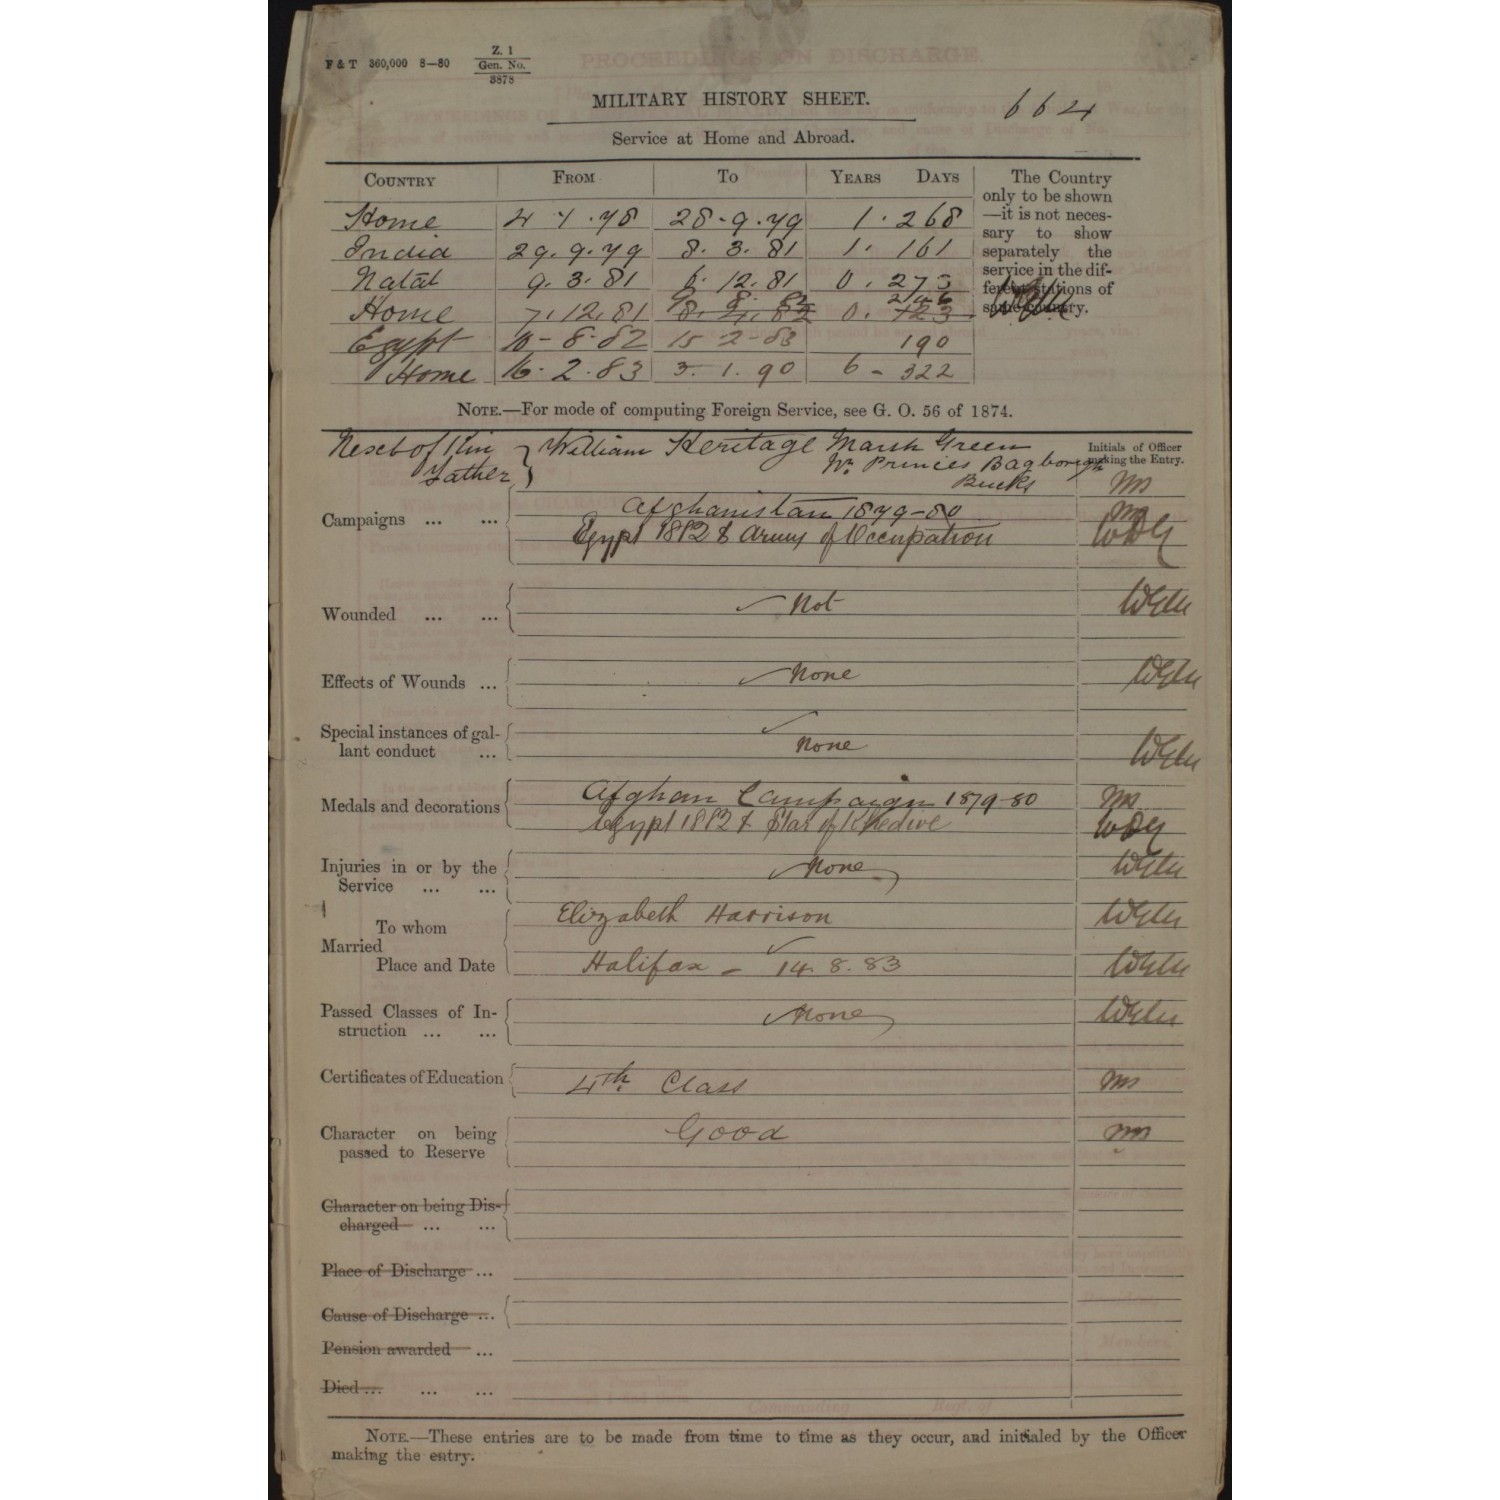 F & T 360,000 8—80
Z. 1
Gen. No.
3878
MILITARY HISTORY SHEET.
664
Service at Home and Abroad.
COUNTRY FROM TO YEARS DAYS
Home 4.1.78 28.9.79 1.268
India 29.9.79 8.3.81 1.161
Natal 9.3.81 6.12.81 0.273
9. 8. 82 246
Home 7.12.81 8.4.82 0. 123
Egypt 10-8-82 15-2-83 190
Home 16.2.83 3.1.90 6-322
The Country
only to be shown
—it is not neces-
sary to show
separately the
service in the dif-
ferent stations of
same country.
NOTE.—For mode of computing Foreign Service, see G. O. 56 of 1874.
Next of Kin } William Heritage Marsh Green
Father Nr. Princes
Bucks
Initials of Officer
making the Entry.
Campaigns ... ... Afghanistan 1879-80
Egypt 1882 & Army of Occupation
Wounded ... ... Not
Effects of Wounds ... None
Special instances of gal-
lant conduct ... None
Medals and decorations Afghan Campaign 1879-80
Egypt 1882 & Star of Khedive
Injuries in or by the
Service ... ... None
To whom Elizabeth Harrison
Married
Place and Date Halifax - 14.8.83
Passed Classes of In-
struction ... ... None
Certificates of Education 4th Class
Character on being
passed to Reserve Good
Character on being Dis-
charged ... ...
Place of Discharge ...
Cause of Discharge ...
Pension awarded ...
Died ... ... ...
NOTE.—These entries are to be made from time to time as they occur, and initialed by the Officer
making the entry.